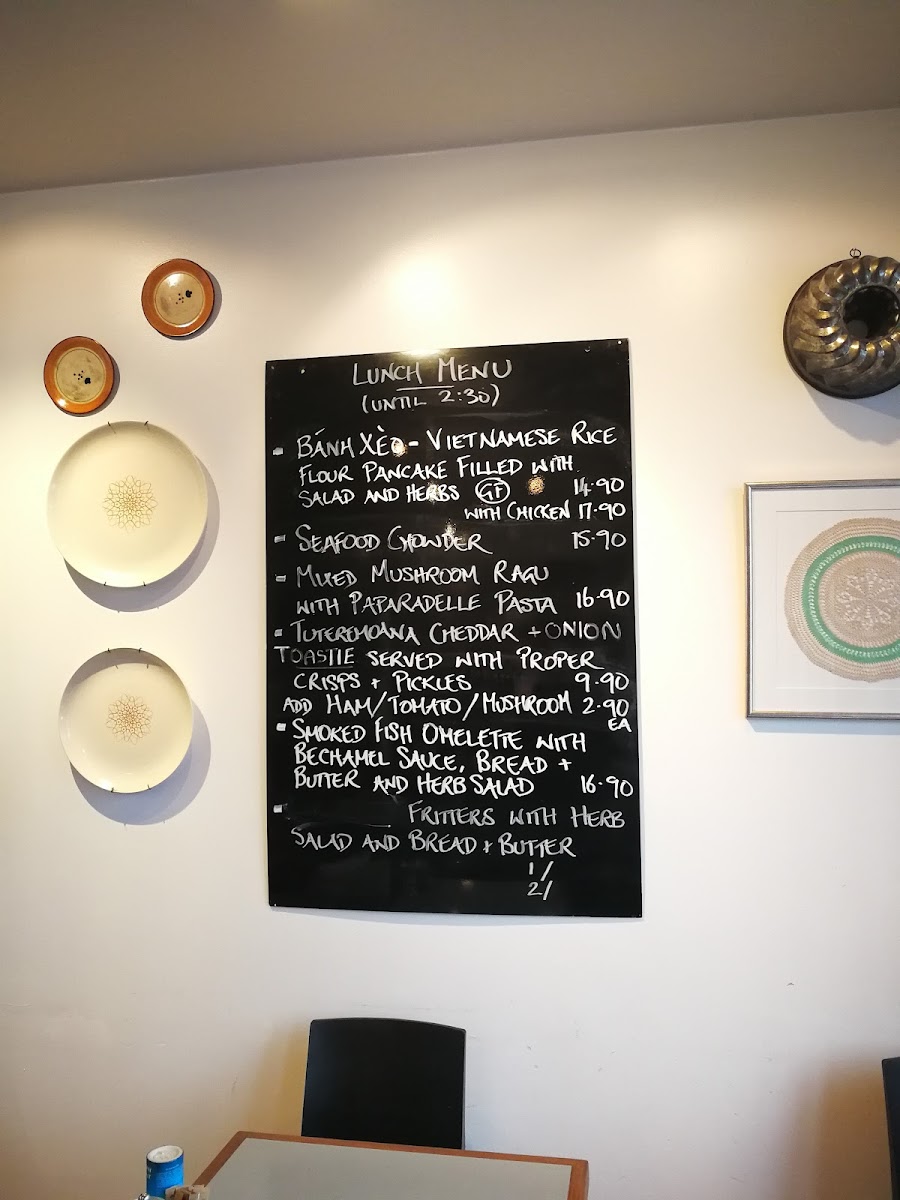 LUNCH MENU
(UNTIL 2:30)
- BÁNH XÈO - VIETNAMESE RICE
FLOUR PANCAKE FILLED WITH
SALAD AND HERBS GF 14.90
WITH CHICKEN 17.90
- SEAFOOD CHOWDER 15.90
- MIXED MUSHROOM RAGU
WITH PAPARADELLE PASTA 16.90
- TUTEREMOANA CHEDDAR + ONION
TOASTIE SERVED WITH PROPER
CRISPS + PICKLES 9.90
ADD HAM/TOMATO/MUSHROOM 2.90
EA
- SMOKED FISH OMELETTE WITH
BECHAMEL SAUCE, BREAD +
BUTTER AND HERB SALAD 16.90
- FRITTERS WITH HERB
SALAD AND BREAD + BUTTER
1/
2/